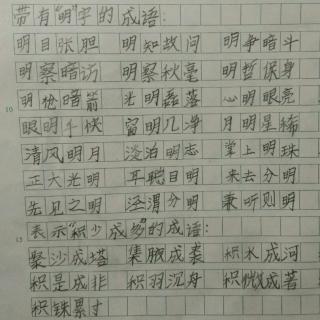 带有"明"字的成语:
明目张胆 明知故问 明争暗斗
明察暗访 明察秋毫 明哲保身
10 明枪暗箭 光明磊落 心明眼亮
眼明手快 窗明几净 月明星稀
清风明月 淡泊明志 掌上明珠
正大光明 耳聪目明 来去分明
先见之明 泾渭分明 兼听则明
15 表示"积少成多"的成语:
聚沙成塔 集腋成裘 积水成河
积是成非 积羽沉舟 积微成著
积铢累寸